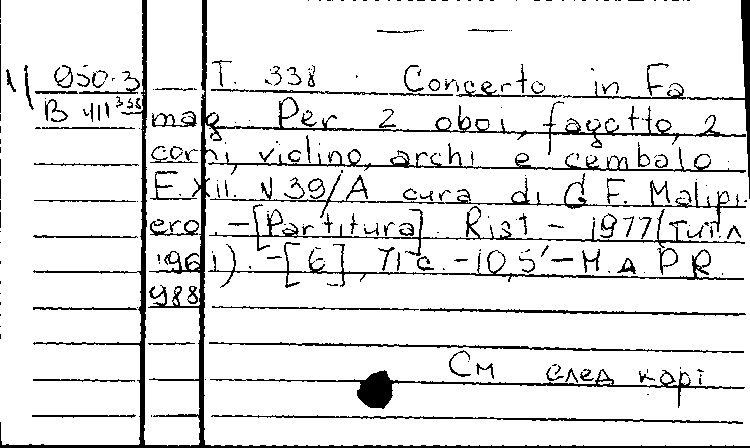 1/ Ø50.3 T. 338. Concerto in Fa
В 411 338 mag Per 2 oboi, fagotto, 2
corni, violino, archi e cembalo.
F. XII. N 39/A cura di G F. Malipi
ero. -[Partitura]. Rist - 1977(тит.л
1961). -[6], 71 с. -10,5' - H. A P R.
988
См след карт